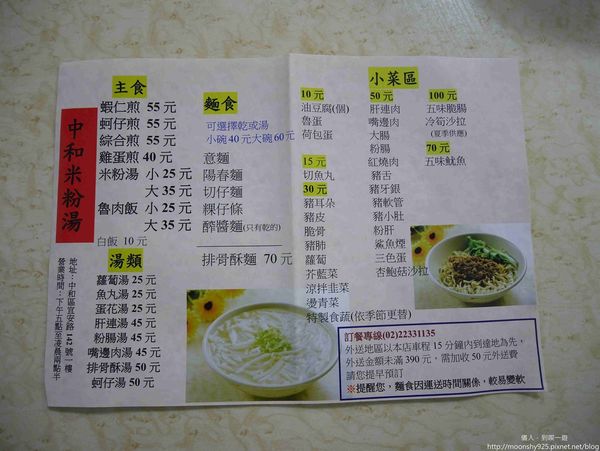 中和米粉湯
地址：中和區宜安路142號一樓
營業時間：下午五點至凌晨兩點半
主食
蝦仁煎 55 元
蚵仔煎 55 元
綜合煎 55 元
雞蛋煎 40 元
米粉湯 小 25 元
大 35 元
魯肉飯 小 25 元
大 35 元
白飯 10 元
湯類
蘿蔔湯 25 元
魚丸湯 25 元
蛋花湯 25 元
肝連湯 45 元
粉腸湯 45 元
嘴邊肉湯 45 元
排骨酥湯 50 元
蚵仔湯 50 元
麵食
可選擇乾或湯
小碗 40 元大碗 60 元
意麵
陽春麵
切仔麵
粿仔條
醡醬麵(只有乾的)
排骨酥麵 70 元
小菜區
10 元
油豆腐(個)
魯蛋
荷包蛋
15 元
切魚丸
30 元
豬耳朵
豬皮
脆骨
豬肺
蘿蔔
芥藍菜
涼拌韭菜
燙青菜
特製食蔬(依季節更替)
50 元
肝連肉
嘴邊肉
大腸
粉腸
紅燒肉
豬舌
豬牙銀
豬軟管
豬小肚
粉肝
鯊魚煙
三色蛋
杏鮑菇沙拉
100 元
五味脆腸
冷筍沙拉
(夏季供應)
70 元
五味魷魚
訂餐專線(02)22331135
外送地區以本店車程 15 分鐘內到達地為先，
外送金額未滿 390 元，需加收 50 元外送費
請您提早預訂
※提醒您，麵食因運送時間關係，較易變軟
儷人‧到處一遊
http://moonshy925.pixnet.net/blog